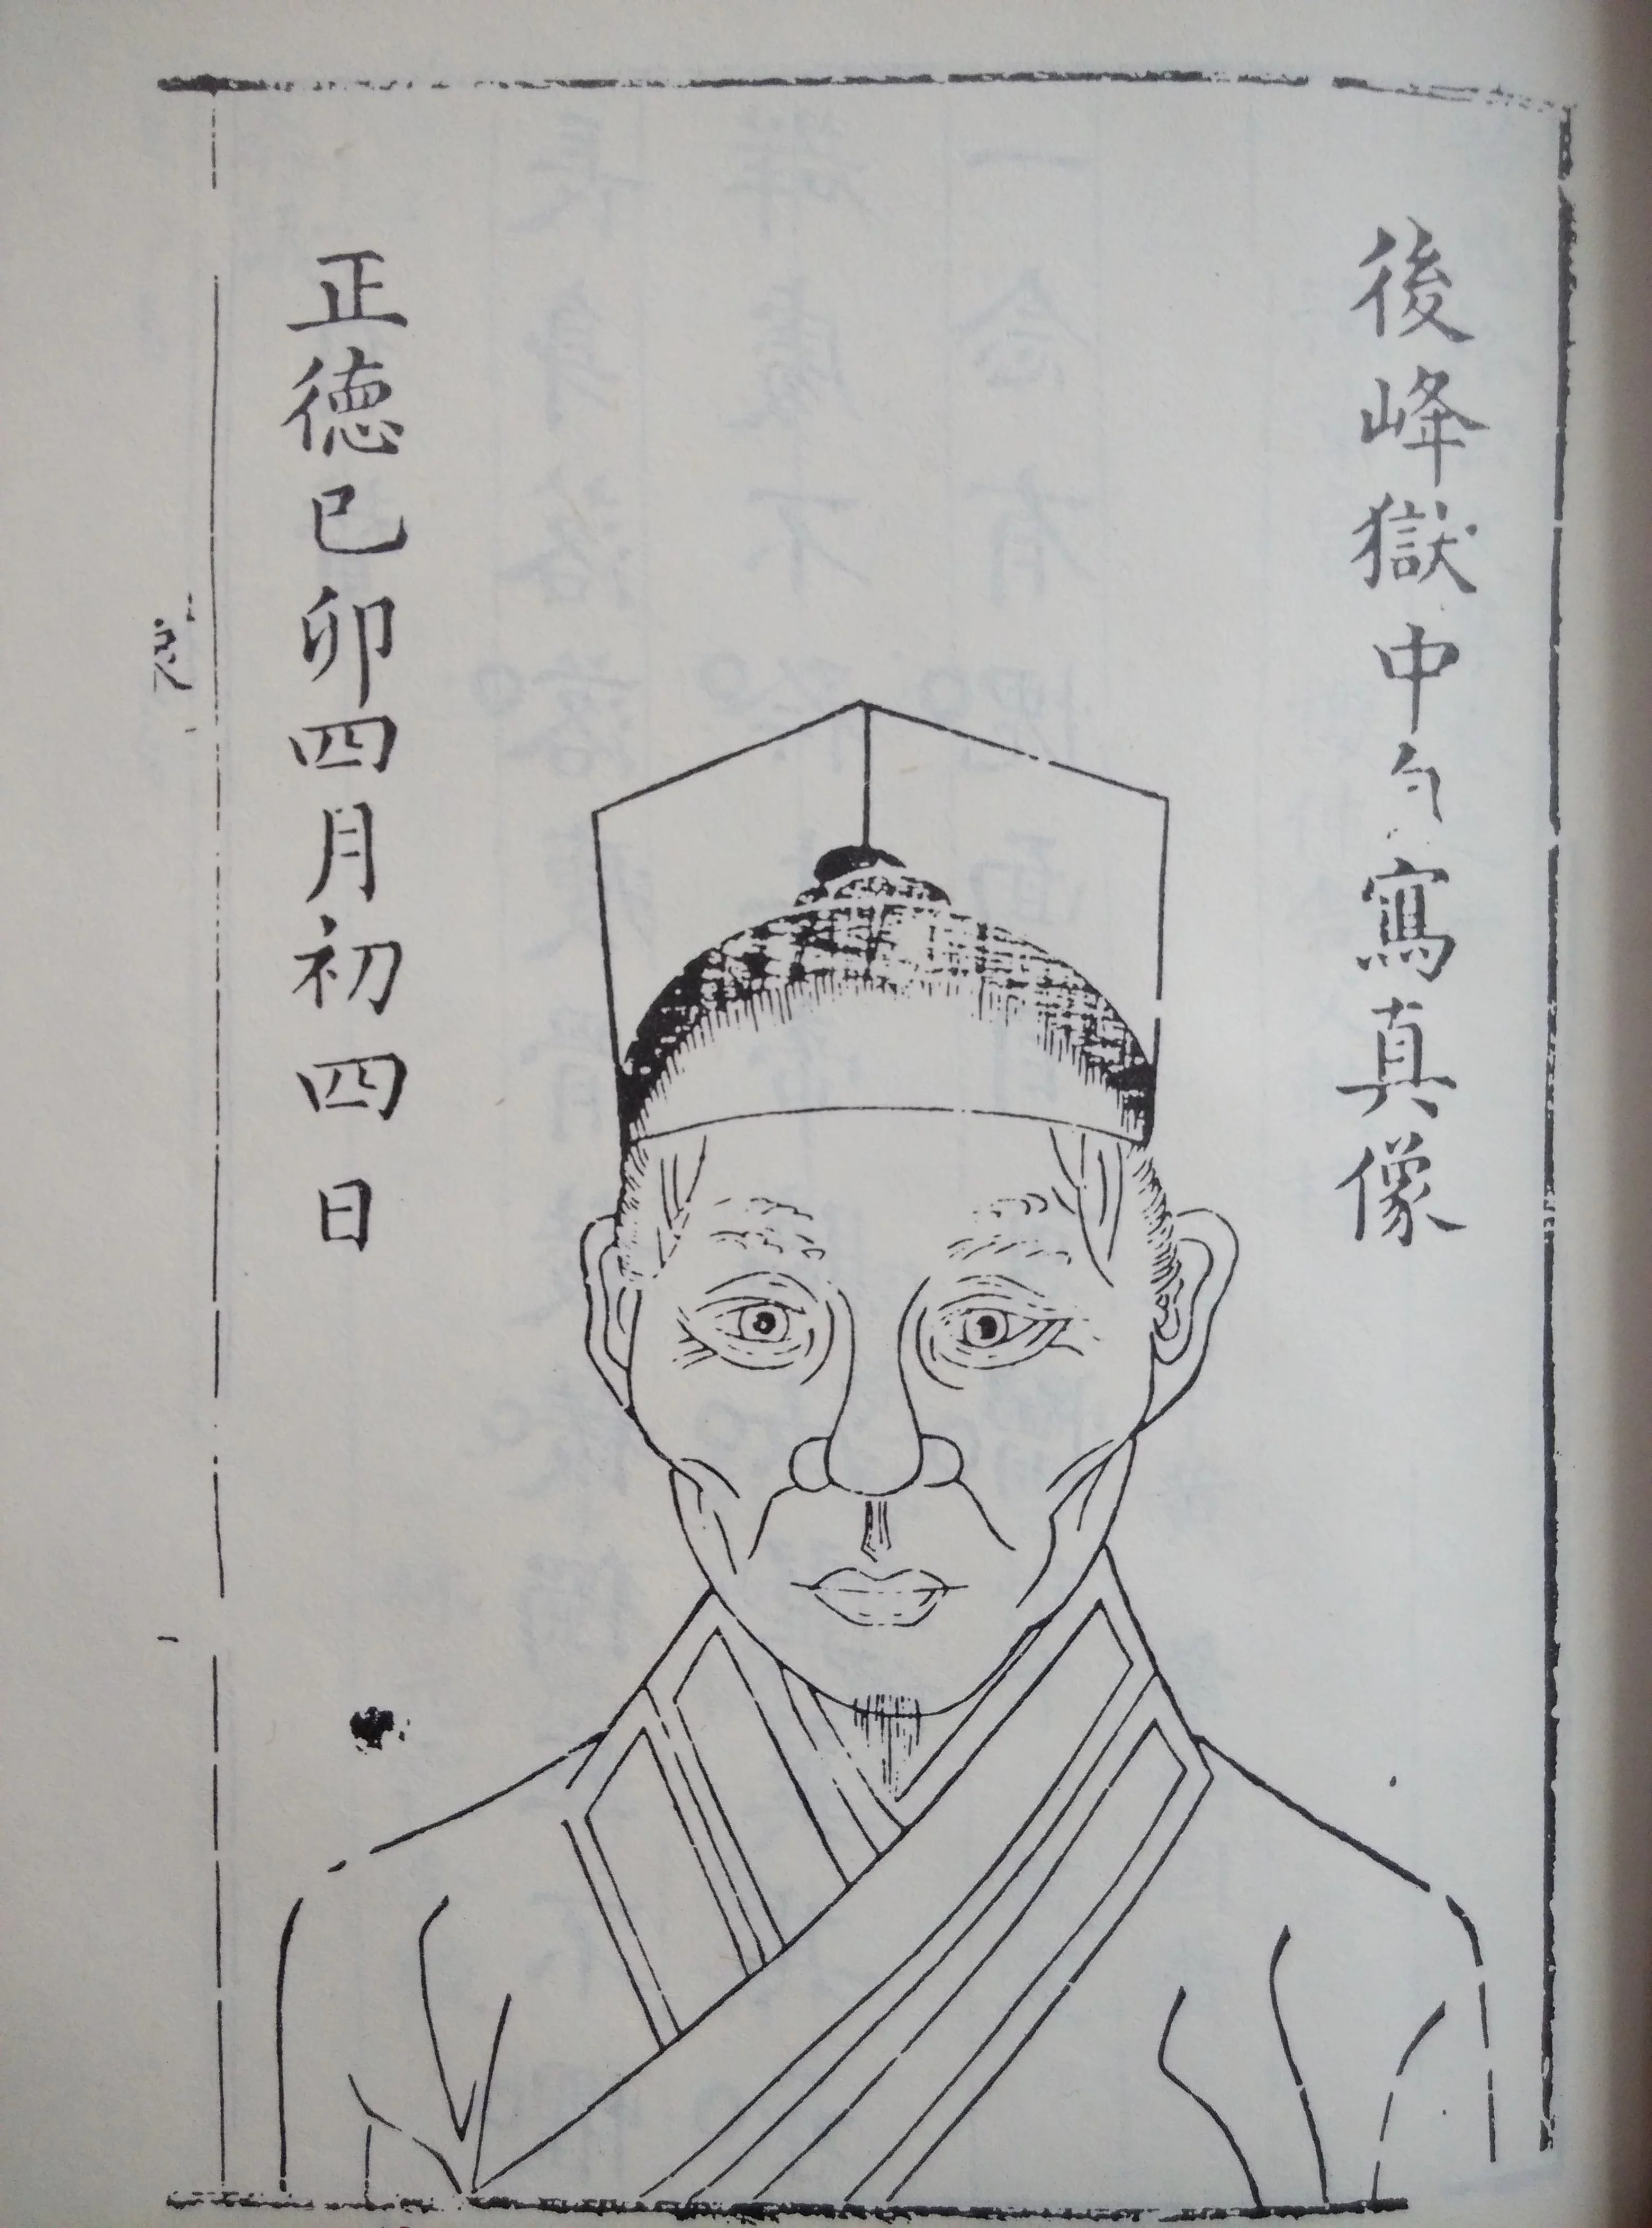 後峰獄中匄寫真像
正德己卯四月初四日